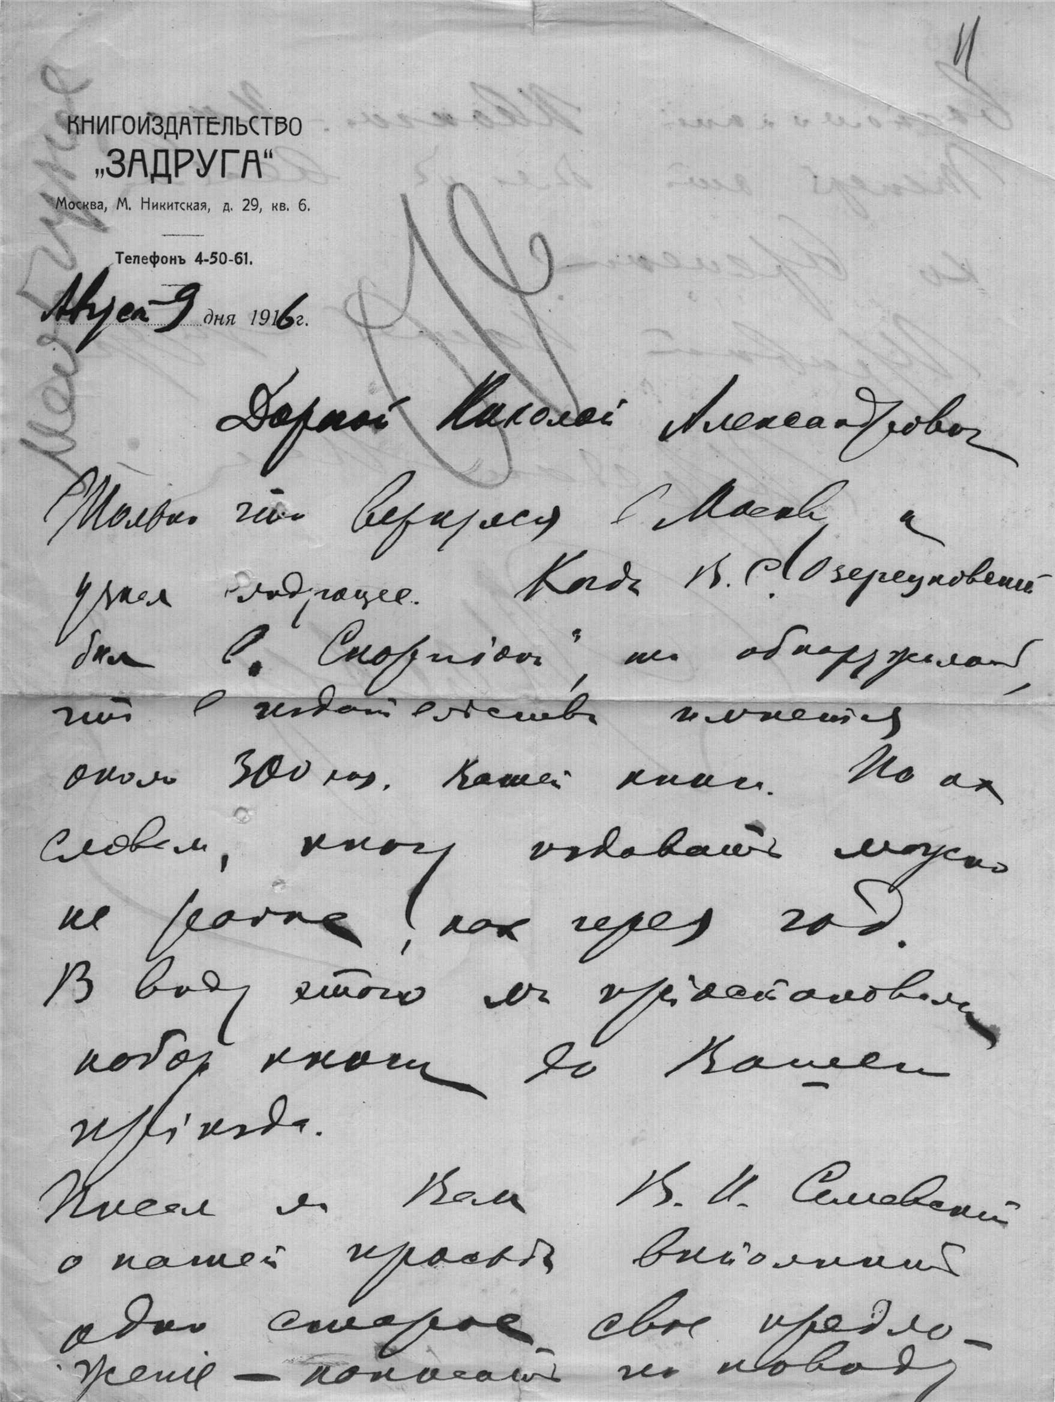 КНИГОИЗДАТЕЛЬСТВО
„ЗАДРУГА“
Москва, М. Никитская, д. 29, кв. 6.
Телефонъ 4-50-61.
Август 9 дня 1916 г.
Дорогой Николай Александрович
Только что вернулся в Москву и
узнал следующее. Когда В. С. Озерецковский
был в „Скорпіоне“, то обнаружилось,
что в издательстве имеется
около 300 экз. Вашей книги. По их
словам, книгу издавать можно
не ранее, как через год.
В виду этого мы пріостановили
набор книги до Вашего
пріезда.
Писал ли Вам В. И. Семевский
о нашей просьбе выполнить
одно старое свое предло-
женіе — написать по поводу